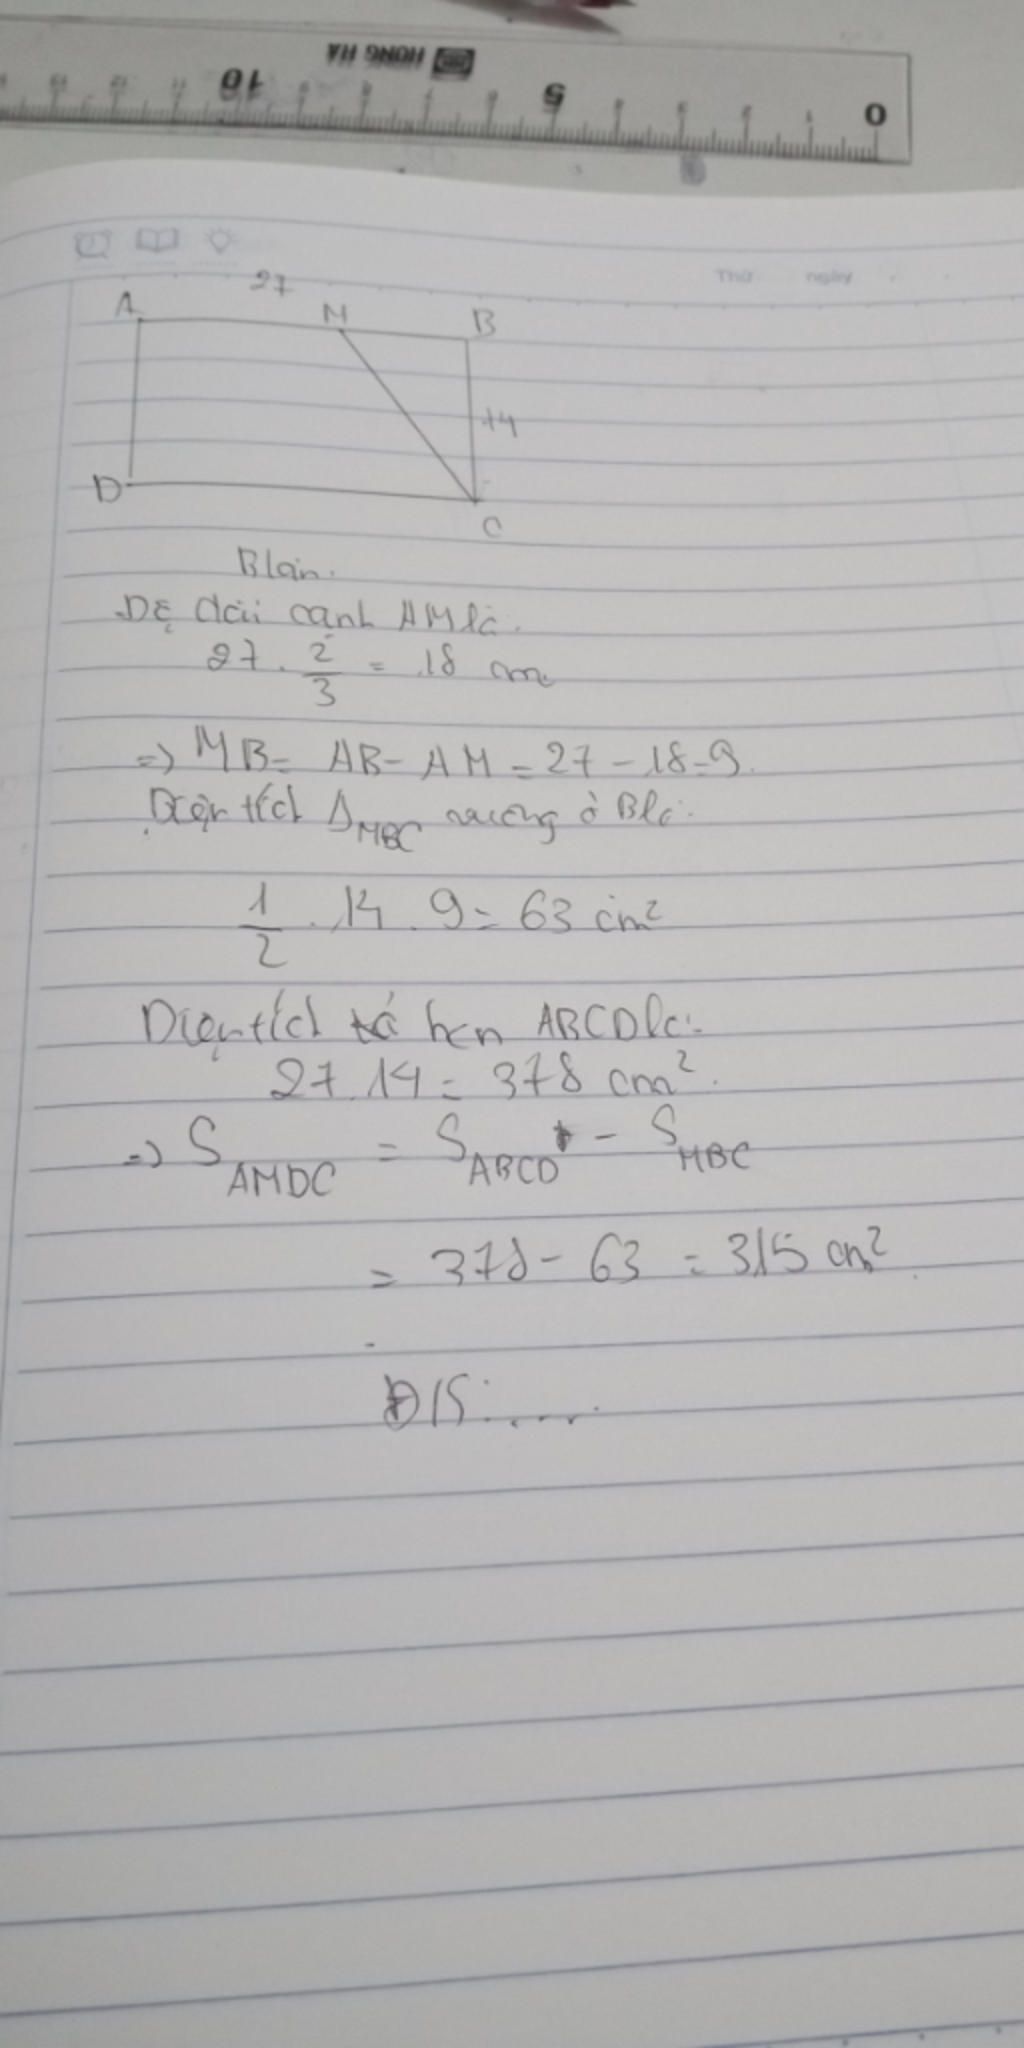 HONG HA
10 5 0
Thứ ngày
27
A M B
14
D C
Bloin.
Dẹ dài cạnh AM là.
27 . 2/3 = 18 cm
=> MB = AB - AM = 27 - 18 = 9.
Diện tích Δ MBC vuông ở B là:
1/2 . 14 . 9 = 63 cm²
Diện tích ABCD là:
27.14 = 378 cm².
=> S AMDC = S ABCD - S MBC
= 378 - 63 = 315 cm²
Đ/S:....